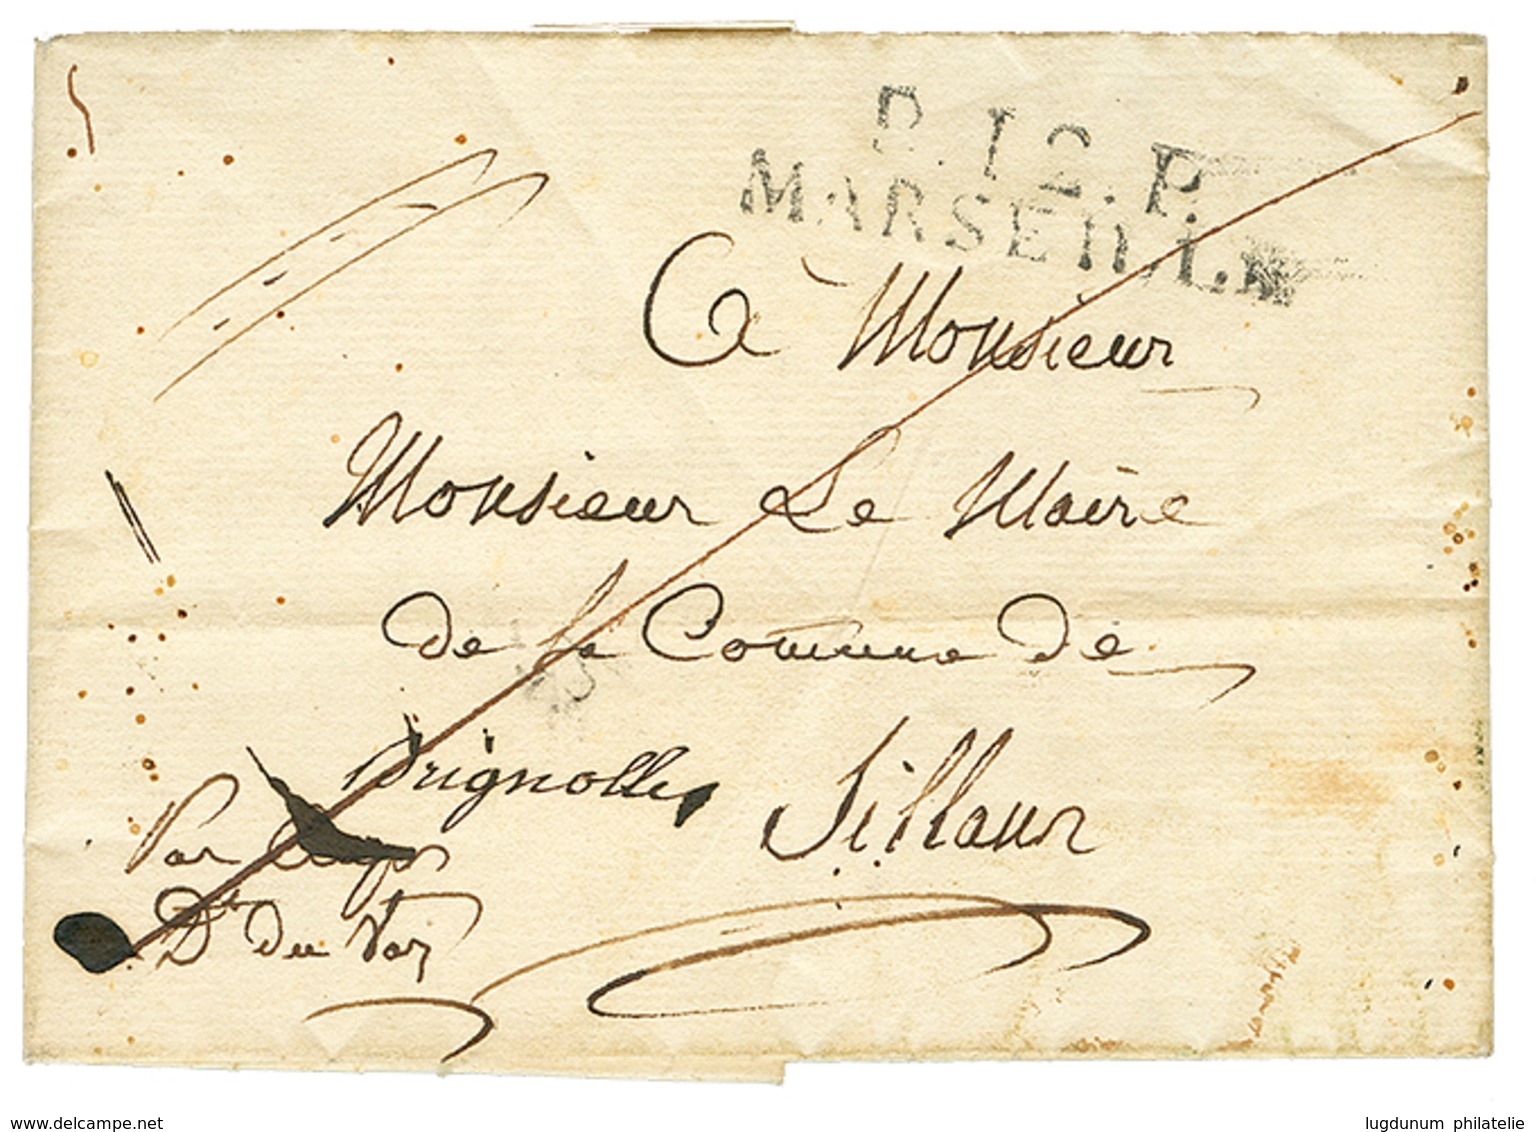 P.12.P.
MARSEILLE
A Monsieur
Monsieur Le Maire
de la Commune de
Brignolles Sillaur
Par
Dt du Var
delcampe.net
lugdunum philatelie